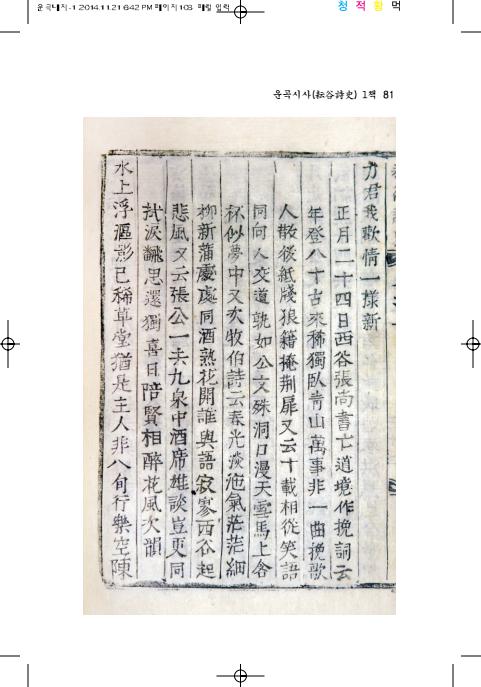 운곡대지-1 2014.11.21 6:42 PM 페이지103
청 적 황 먹
운곡시사(耘谷詩史) 1책 81
力君我歡情一樣新
正月二十四日西谷張尚書亡道境作挽詞云
年登八十古來稀獨臥靑山萬事非一曲挽歌
人散後紙牋狼籍掩荆扉又云十載相從笑語
同向人交道孰如公文殊洞口漫天雪馬上含
杯似夢中又次牧伯詩云春光淡沲氣茫茫細
柳新蒲處處同酒熟花開誰與語寂寥西谷起
悲風又云張公一去九泉中酒席雄談豈更同
拭淚飜思還獨喜日陪賢相醉花風次韻
水上浮漚影已稀草堂猶是主人非八旬行樂空陳